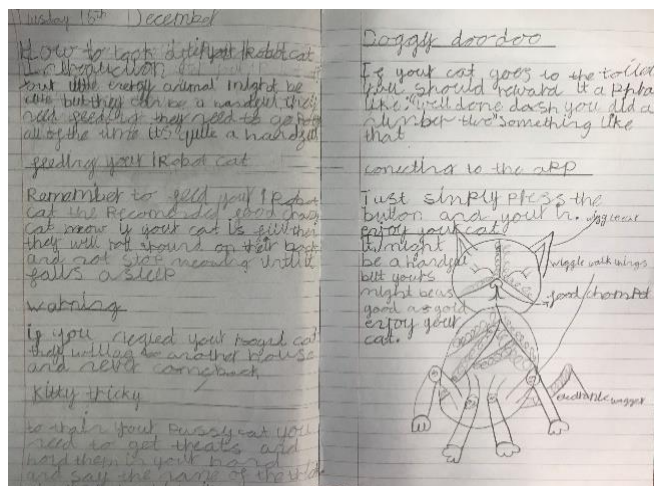 Tuesday 15th December
How to look your IRobot cat
Introduction
animal might be
cute but they can be a handful they
need feeding they need to go
all of the time its quite a handful
feeding your IRobot cat
Remember to feed your IRobot
cat the Recomended food
cat meow if your cat is
they will roll around on their back
and not stop meowing untill
falls asleep
warning
if you negled your cat
they will to another house
and never comeback
Kitty tricky
to your pussycat you
need to get theats and
hold them in your hand
and say the name of the
Doggy doodoo
If your cat goes to the toilet
you should reward it a
like "well done dash you did a
number two" something like
that
conecting to the app
Just simply press the
button and your in.
enjoy your cat
it might
be a handful
but yours
might be as
good as gold
enjoy your
cat.
wiggle walk
food chomper
wagger